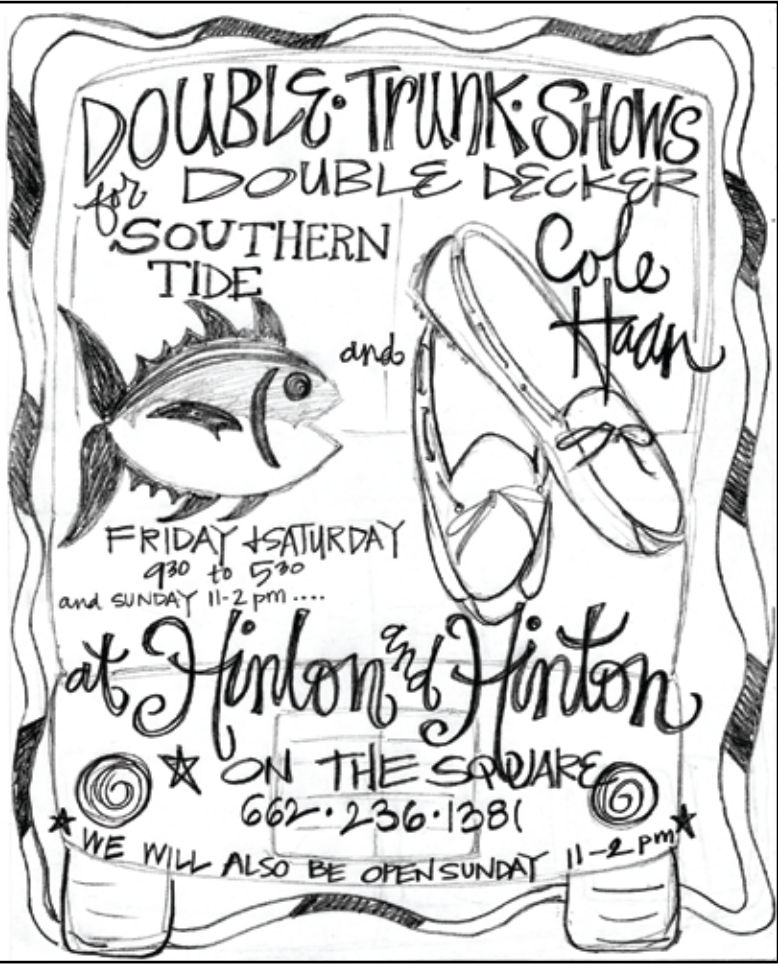 DOUBLE·TRUNK·SHOWS
for DOUBLE DECKER
SOUTHERN
TIDE
and
Cole
Haan
FRIDAY + SATURDAY
9:30 to 5:30
and SUNDAY 11-2 pm....
at Hinton and Hinton
ON THE SQUARE
662·236·1381
WE WILL ALSO BE OPEN SUNDAY 11-2 pm